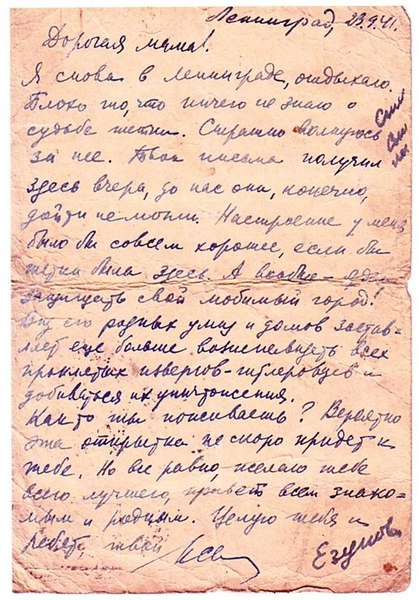 Ленинград, 23.9.41.
Дорогая мама!
Я снова в Ленинграде, отдыхаю.
Плохо то, что ничего не знаю о
судьбе тётки. Страшно волнуюсь
за нее. Твои письма получил
здесь вчера, до нас они, конечно,
дойти не могли. Настроение у меня
было бы совсем хорошее, если бы
тётка была здесь. А вообще – еду
защищать свой любимый город!
Вид его родных улиц и домов застав-
ляет еще больше возненавидеть всех
проклятых извергов-гитлеровцев и
добиваться их уничтожения.
Как-то ты поживаешь? Вероятно
эта открытка не скоро придет к
тебе. Но все равно, желаю тебе
всего лучшего, привет всем знако-
мым и родным. Целую тебя и
твой